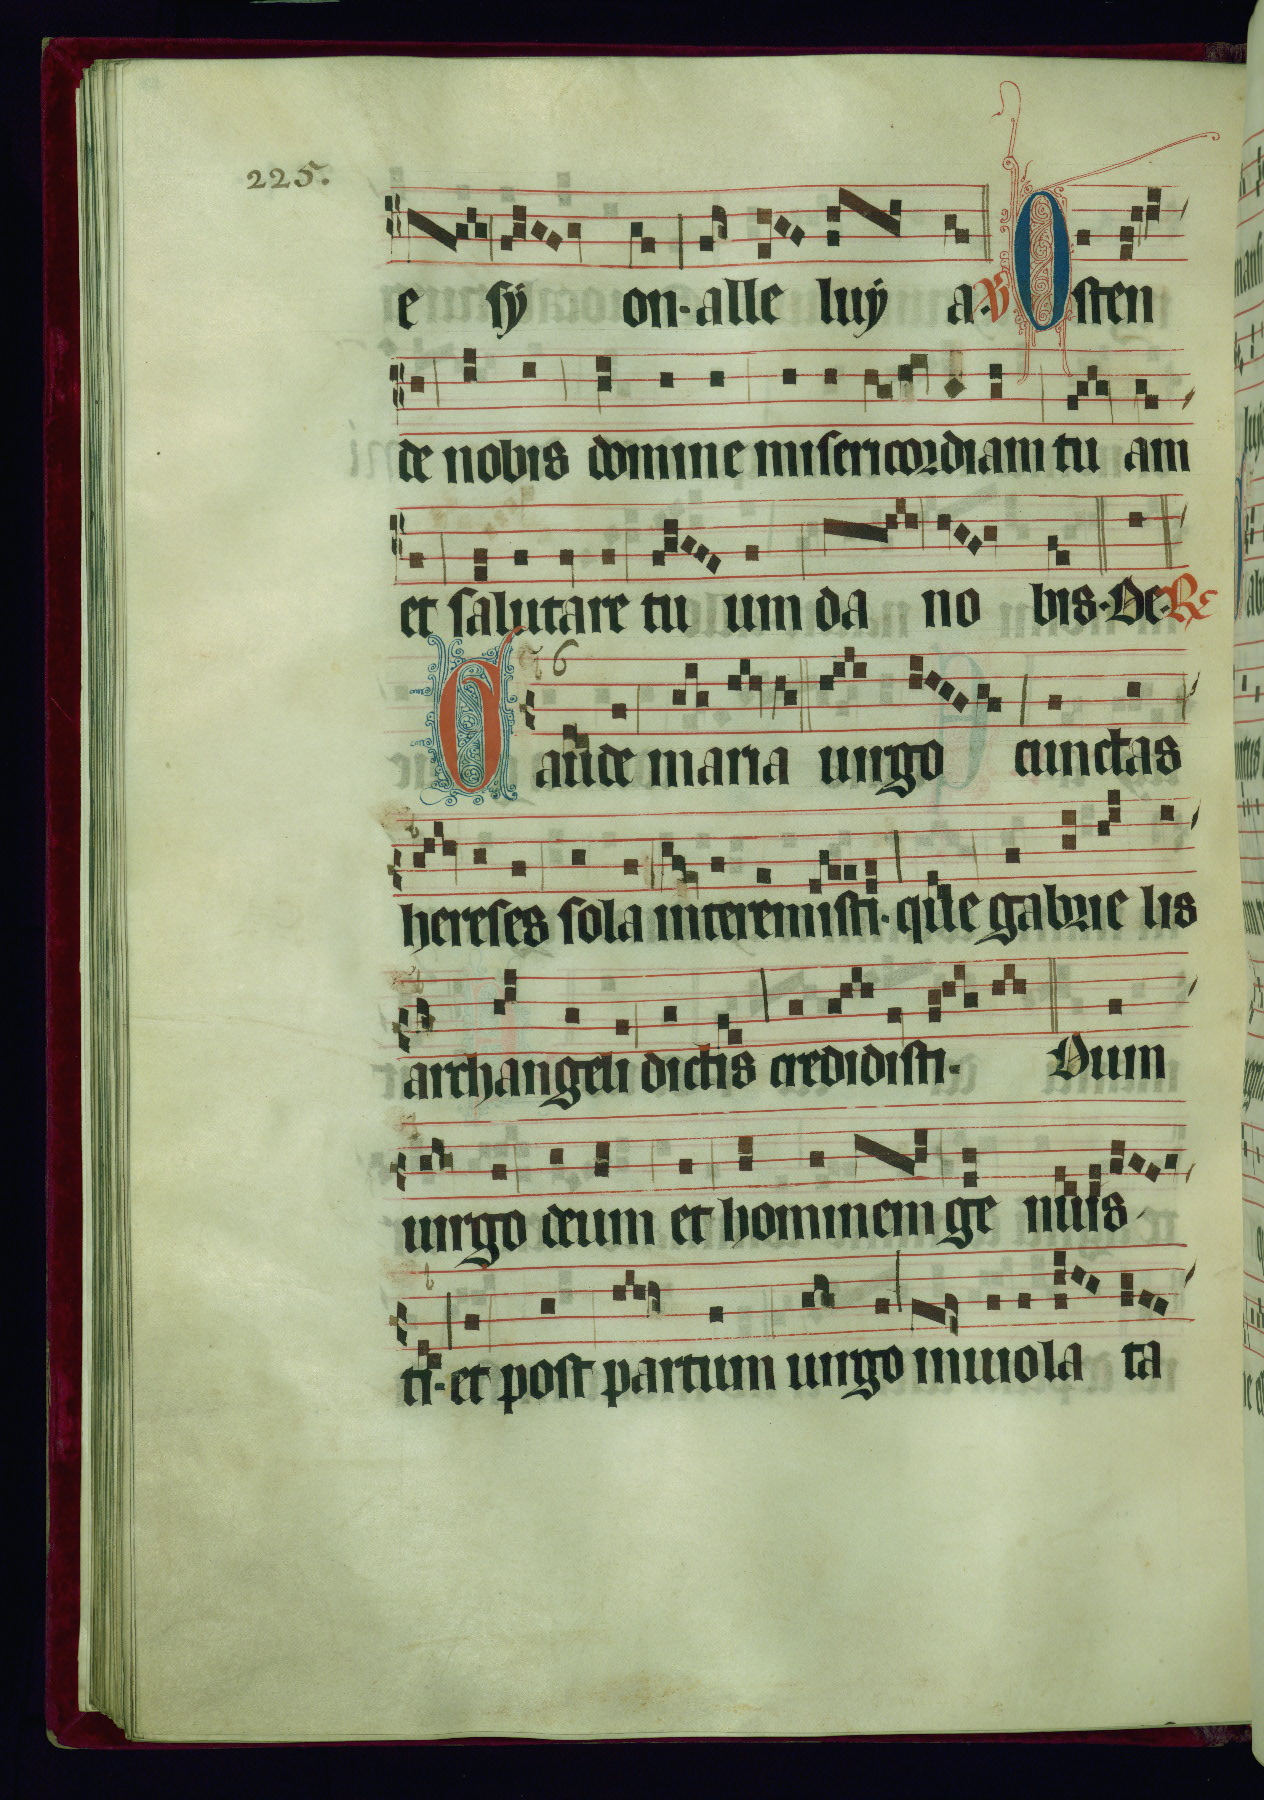 225.
e sÿ on. alle luÿ a. V Osten
de nobis domine misericordiam tu am
et salutare tu um da no bis. De. R
6
Gaude maria uirgo cunctas
hereses sola interemisti. que gabrie lis
archangeli dictis credidisti. Dum
uirgo deum et hominem ge nuis
ti. et post partum uirgo inuiola ta